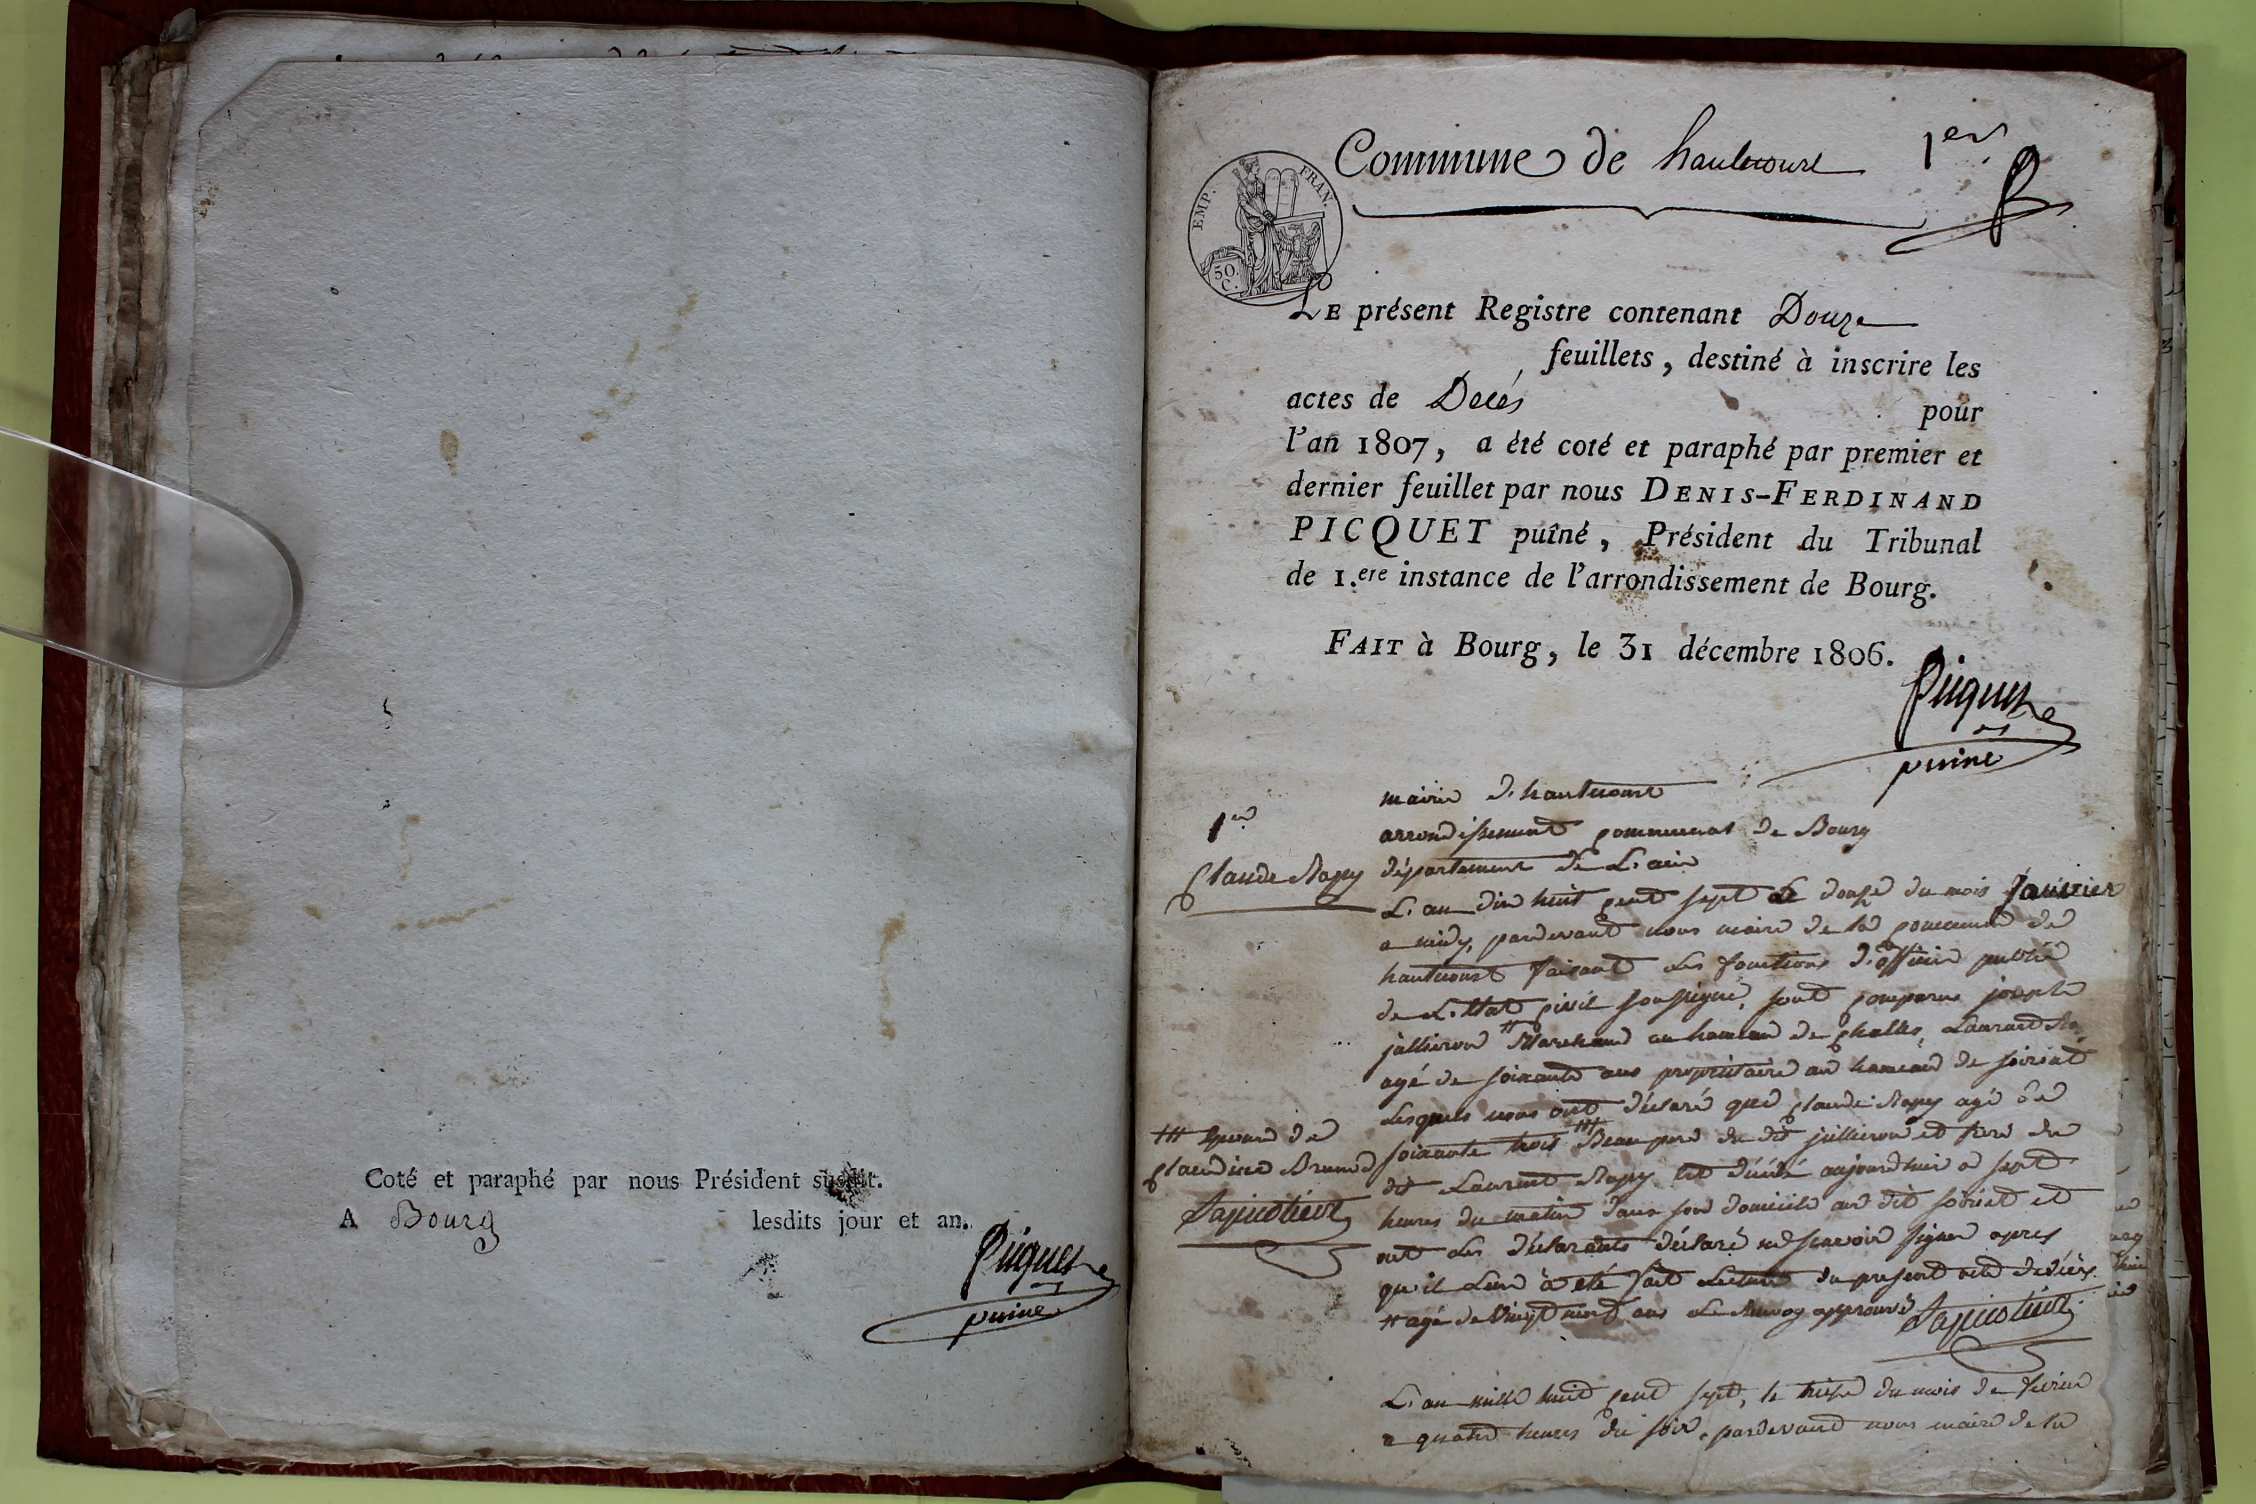 Coté et paraphé par nous Président susdit.
A Bourg lesdits jour et an.
Picquet
puiné
Commune de hautecourt 1er
EMP. FRAN.
50. C.
LE présent Registre contenant Douze
feuillets, destiné à inscrire les
actes de Décés pour
l'an 1807, a été coté et paraphé par premier et
dernier feuillet par nous DENIS-FERDINAND
PICQUET puîné, Président du Tribunal
de 1.ere instance de l'arrondissement de Bourg.
FAIT à Bourg, le 31 décembre 1806.
Picquet
puiné
mairie d'hautecourt
1er
arrondissement communal de Bourg
Claude Rapy
département de L'ain
L'an dix huit cent sept le douze du mois Janvier
a midy, pardevant nous maire de la commune de
hautecourt faisant les fonctions d'officier public
de L'Etat civil soussigné, sont comparus joseph
jullieron # Marchand au hameau de Challes, Laurent
agé de soixante ans propriétaire au hameau de soiriat
Lesquels nous ont déclaré que Claude Rapy agé de
soixante trois ## Beaupere du dit jullieron et frere du
## Epoux de
Claudine Brunod
dit Laurent Rapy est décédé aujourdhui a sept
heures du matin dans son domicile au dit soiriat et
ont les déclarants déclaré ne scavoir signer apres
qu'il leur à eté fait lecture du present acte de décès.
# agé de vingt neuf ans le renvoy approuvé
L'an mille huit cent sept, le treize du mois de fevrier
a quatre heures du soir, pardevant nous maire de la